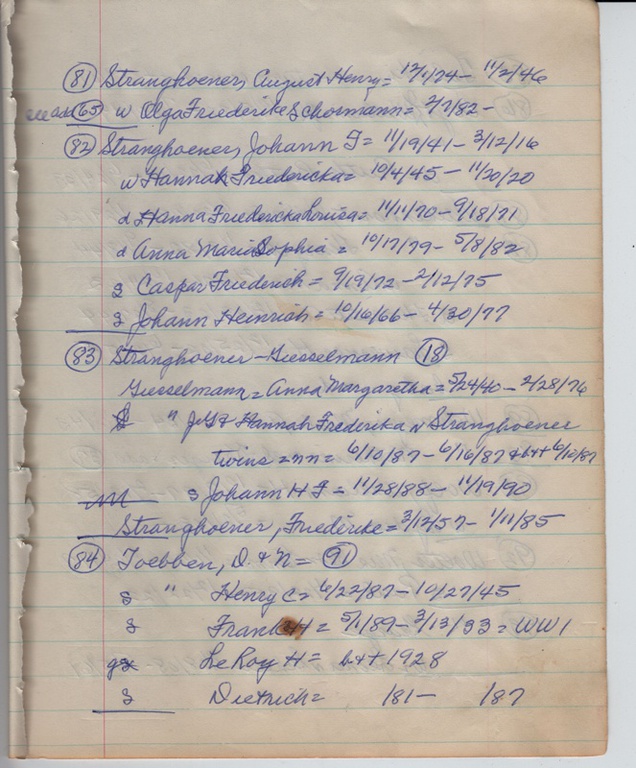 (81) Stranghoener, August Henry = 12/1/74 - 11/2/46
see also (65) w Olga Friederike Schormann = 2/7/82 -
(82) Stranghoener, Johann F = 11/19/41 - 3/12/16
w Hannah Friedericka = 10/4/45 - 11/20/20
d Hanna Friedericka Louisa = 11/11/70 - 9/18/71
d Anna Maria Sophia = 10/17/79 - 5/8/82
s Caspar Friederich = 9/19/72 - 2/12/75
s Johann Heinrich = 10/16/66 - 4/30/77
(83) Stranghoener - Giesselmann (18)
Giesselmann = Anna Margaretha = 5/24/40 - 2/28/76
" Hannah Frederika N Stranghoener
twins = nn = 6/10/87 - 6/16/87 & b++ 6/10/87
s Johann H F = 11/28/88 - 11/19/90
Stranghoener, Friederike = 3/12/57 - 1/11/85
(84) Toebben, D. & N = (91)
s " Henry C = 6/22/87 - 10/27/45
s Frank H = 5/1/89 - 3/13/33 = WW1
gs LeRoy H = b++ 1928
s Dietrich = /81 - /87